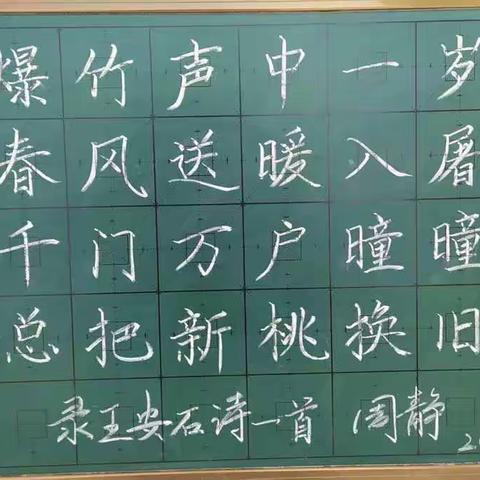 爆竹声中一岁
春风送暖入屠
千门万户曈曈
总把新桃换旧
录王安石诗一首 周静